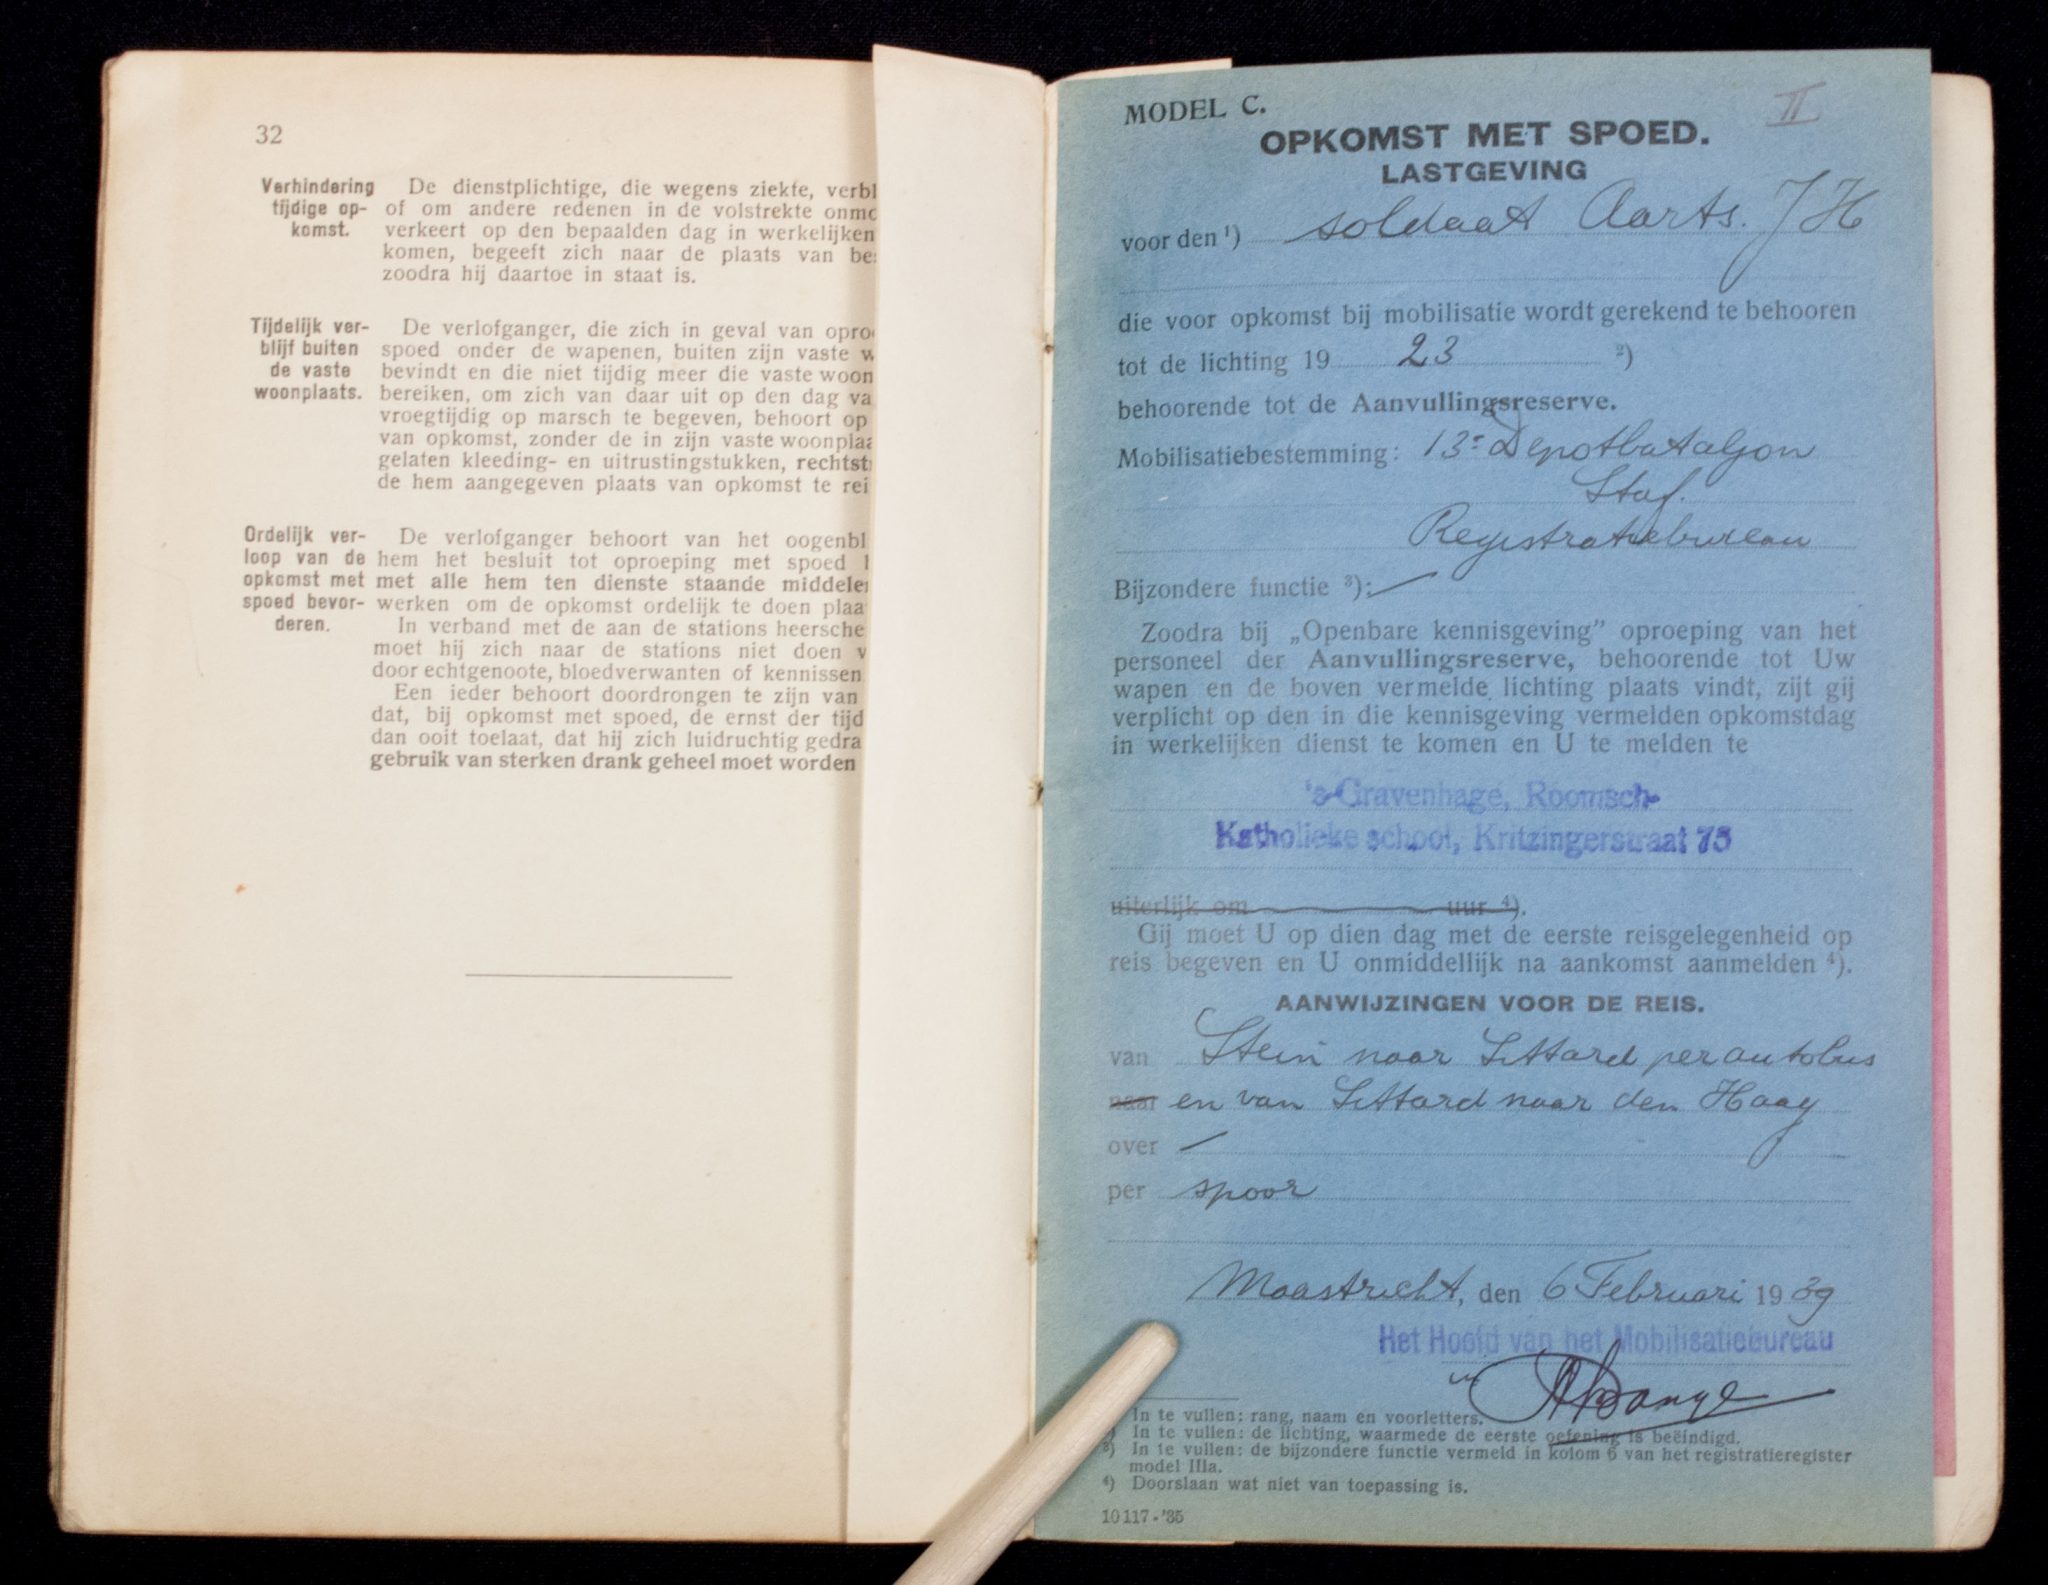 32
Verhindering tijdige op- komst.
De dienstplichtige, die wegens ziekte, verbl
of om andere redenen in de volstrekte onmo
verkeert op den bepaalden dag in werkelijken
komen, begeeft zich naar de plaats van be
zoodra hij daartoe in staat is.
Tijdelijk ver- blijf buiten de vaste woonplaats.
De verlofganger, die zich in geval van opro
spoed onder de wapenen, buiten zijn vaste w
bevindt en die niet tijdig meer die vaste woon
bereiken, om zich van daar uit op den dag va
vroegtijdig op marsch te begeven, behoort op
van opkomst, zonder de in zijn vaste woonplaa
gelaten kleeding- en uitrustingstukken, rechtst
de hem aangegeven plaats van opkomst te rei
Ordelijk ver- loop van de opkomst met spoed bevor- deren.
De verlofganger behoort van het oogenbl
hem het besluit tot oproeping met spoed
met alle hem ten dienste staande middele
werken om de opkomst ordelijk te doen plaa
In verband met de aan de stations heersche
moet hij zich naar de stations niet doen v
door echtgenoote, bloedverwanten of kennissen
Een ieder behoort doordrongen te zijn van
dat, bij opkomst met spoed, de ernst der tijd
dan ooit toelaat, dat hij zich luidruchtig gedra
gebruik van sterken drank geheel moet worden
MODEL C.
II
OPKOMST MET SPOED.
LASTGEVING
voor den 1) soldaat Aarts. J H
die voor opkomst bij mobilisatie wordt gerekend te behooren
tot de lichting 19 23 2)
behoorende tot de Aanvullingsreserve.
Mobilisatiebestemming: 13e Depotbataljon
Staf.
Registratiebureau
Bijzondere functie 3): —
Zoodra bij „Openbare kennisgeving" oproeping van het
personeel der Aanvullingsreserve, behoorende tot Uw
wapen en de boven vermelde lichting plaats vindt, zijt gij
verplicht op den in die kennisgeving vermelden opkomstdag
in werkelijken dienst te komen en U te melden te
's-Gravenhage, Roomsch-
Katholieke school, Kritzingerstraat 75
uiterlijk om uur 4).
Gij moet U op dien dag met de eerste reisgelegenheid op
reis begeven en U onmiddellijk na aankomst aanmelden 4).
AANWIJZINGEN VOOR DE REIS.
van Stein naar Sittard per autobus
naar en van Sittard naar den Haag
over —
per spoor
Maastricht, den 6 Februari 1939
Het Hoofd van het Mobilisatiebureau
In te vullen: rang, naam en voorletters.
) In te vullen: de lichting, waarmede de eerste oefening is beëindigd.
3) In te vullen: de bijzondere functie vermeld in kolom 6 van het registratieregister
model IIIa.
4) Doorslaan wat niet van toepassing is.
10117-'35